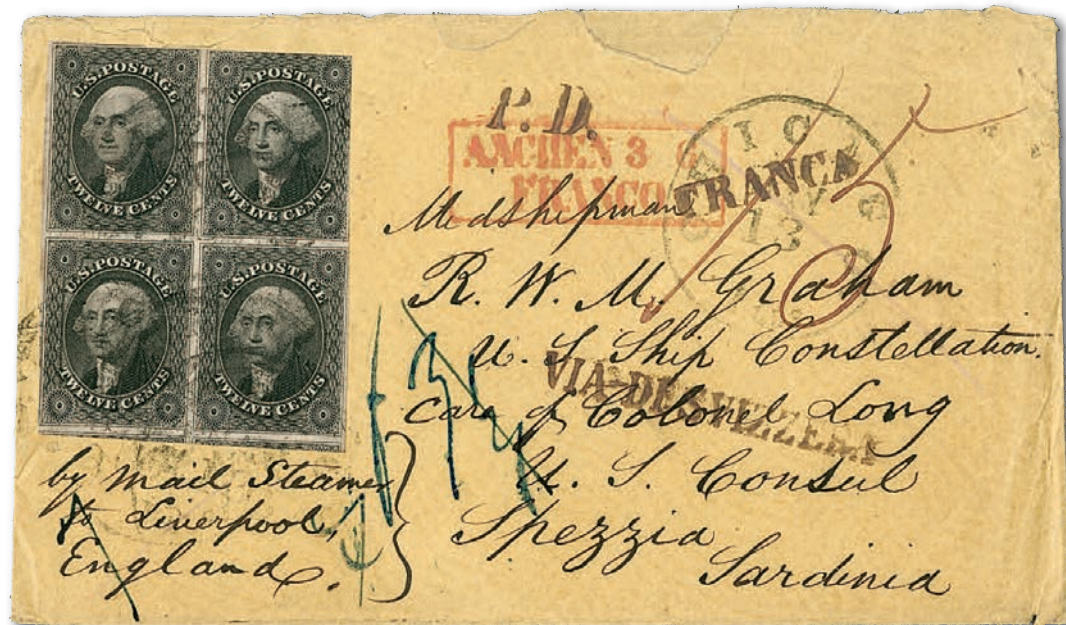 U.S. POSTAGE
TWELVE CENTS
U.S. POSTAGE
TWELVE CENTS
U.S. POSTAGE
TWELVE CENTS
U.S. POSTAGE
TWELVE CENTS
P.D.
AACHEN 3
FRANCO
FRANCA
13
Midshipman
R. W. M. Graham
U. S Ship Constellation.
Care of Colonel Long
VIA-DI-SVIZZERA
U. S. Consul
Spezzia
Sardinia
by Mail Steamer
to Liverpool,
England.